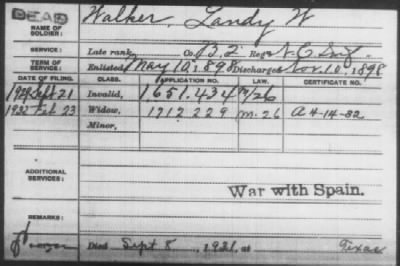 DEAD
NAME OF SOLDIER: Walker, Landy W
SERVICE: Late rank, Co. B. 2 Reg't N.C. Inf.
TERM OF SERVICE: Enlisted May 10, 1898 Discharged Nov. 10, 1898
DATE OF FILING. CLASS. APPLICATION NO. LAW. CERTIFICATE NO.
Sept 21 Invalid, 1.651.434
1932 Feb 23 Widow, 1712229 M. 26 A 4-14-32
Minor,
ADDITIONAL SERVICES:
War with Spain.
REMARKS:
Died Sept 8, 1921, at Texas